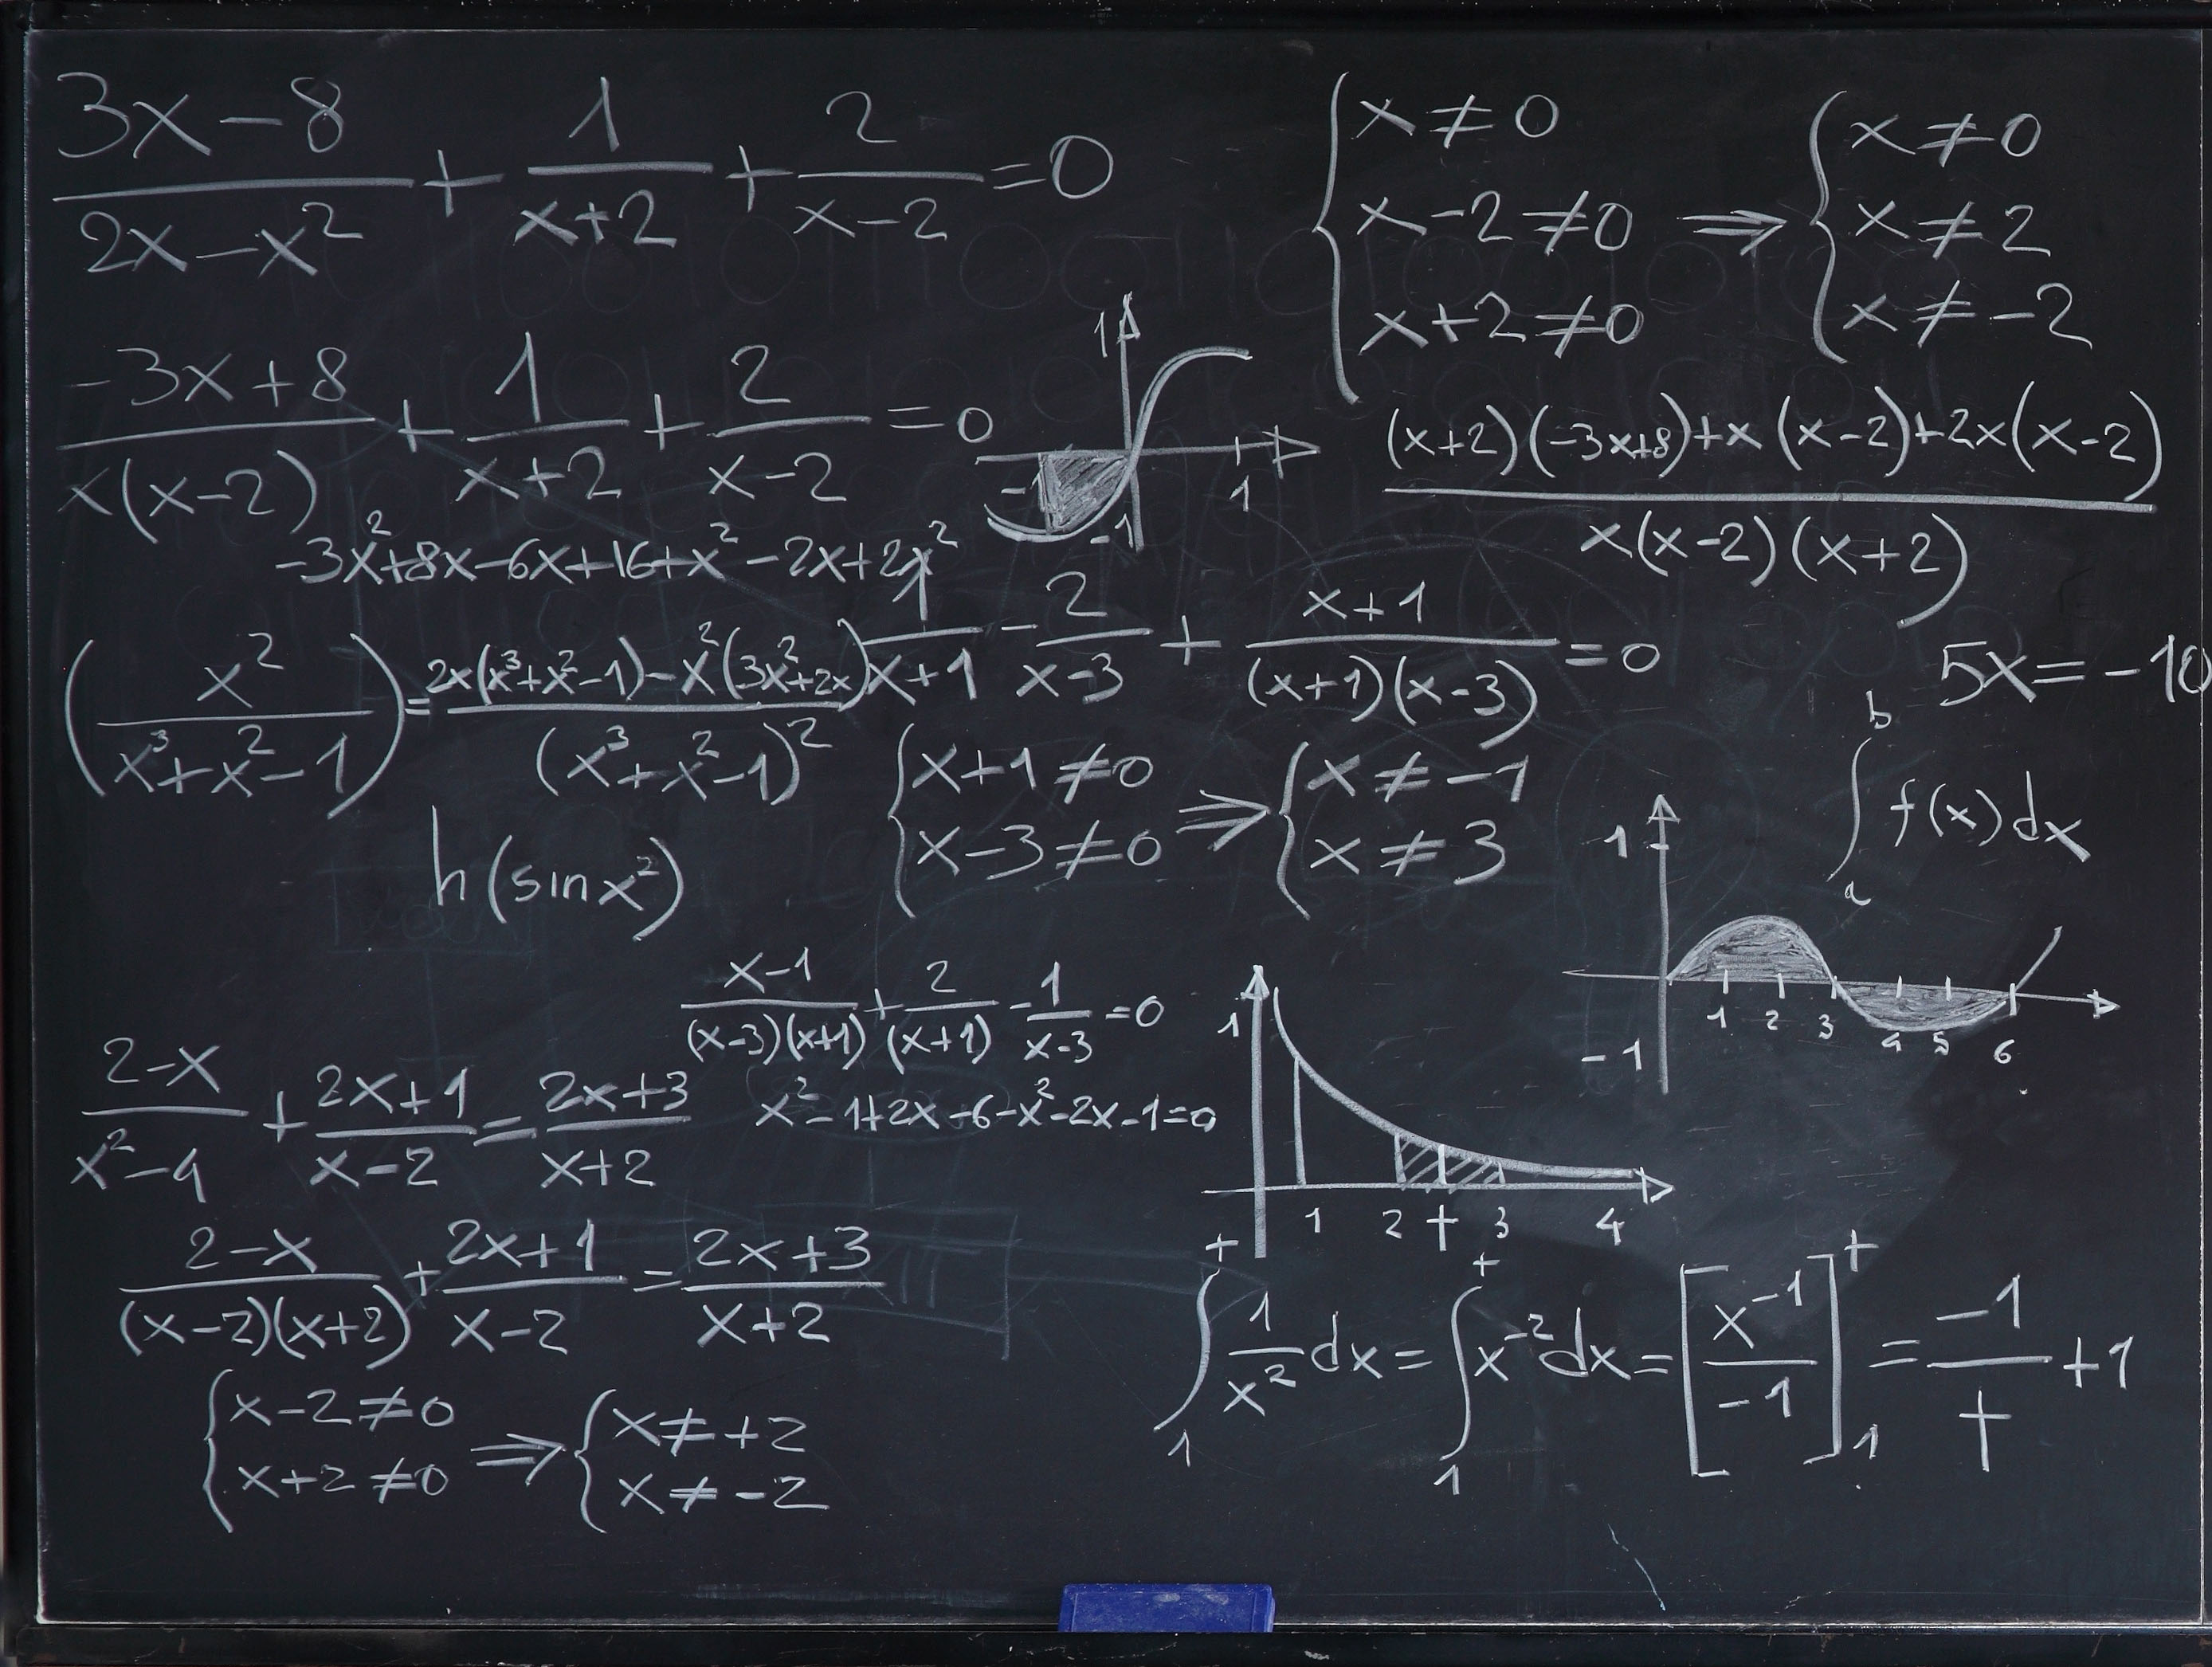 (3x-8)/(2x-x²) + 1/(x+2) + 2/(x-2) = 0
{ x≠0
x-2≠0
x+2≠0
⇒ { x≠0
x≠2
x≠-2
(-3x+8)/(x(x-2)) + 1/(x+2) + 2/(x-2) = 0
1
-1
-1
1
((x+2)(-3x+8)+x(x-2)+2x(x-2))/(x(x-2)(x+2))
-3x²+8x-6x+16+x²-2x+2x²
(x²/(x³+x²-1)) = (2x(x³+x²-1)-x²(3x²+2x))/(x³+x²-1)²
1/(x+1) - 2/(x-3) + (x+1)/((x+1)(x-3)) = 0
5x=-10
{ x+1≠0
x-3≠0
⇒ { x≠-1
x≠3
∫_a^b f(x)dx
h(sinx²)
1
-1
1 2 3 4 5 6
(x-1)/((x-3)(x+1)) + 2/(x+1) - 1/(x-3) = 0
x²-1+2x-6-x²-2x-1=0
1
1 2 t 3 4
(2-x)/(x²-4) + (2x+1)/(x-2) = (2x+3)/(x+2)
(2-x)/((x-2)(x+2)) + (2x+1)/(x-2) = (2x+3)/(x+2)
{ x-2≠0
x+2≠0
⇒ { x≠+2
x≠-2
∫_1^t 1/x² dx = ∫_1^t x⁻² dx = [x⁻¹/-1]_1^t = -1/t + 1